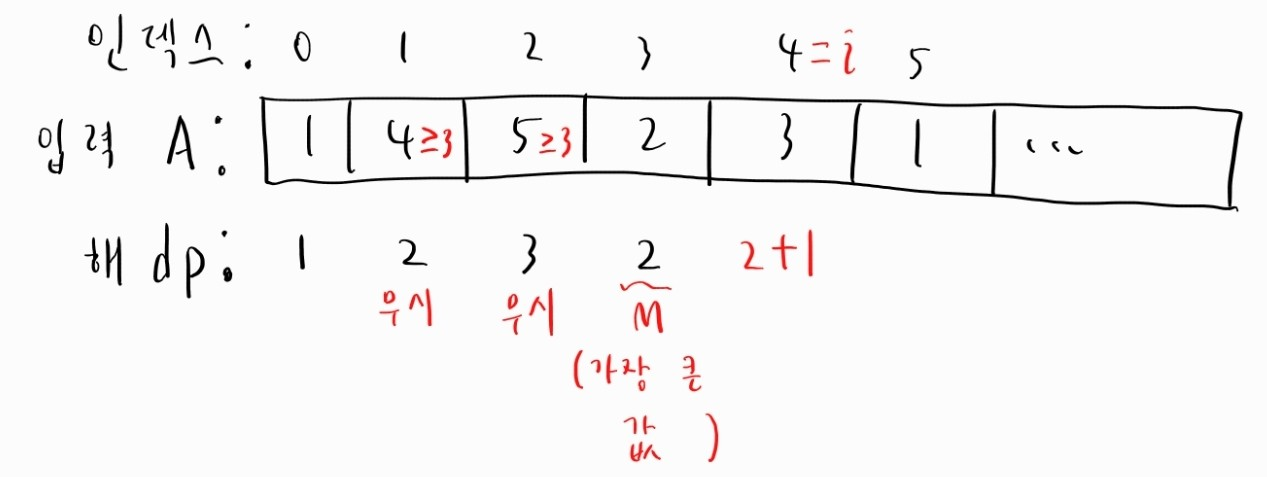 인덱스: 0 1 2 3 4=i 5
입력 A: 1 4≥3 5≥3 2 3 1 ...
해 dp: 1 2 3 2 2+1
무시 무시 M
(가장 큰
값)